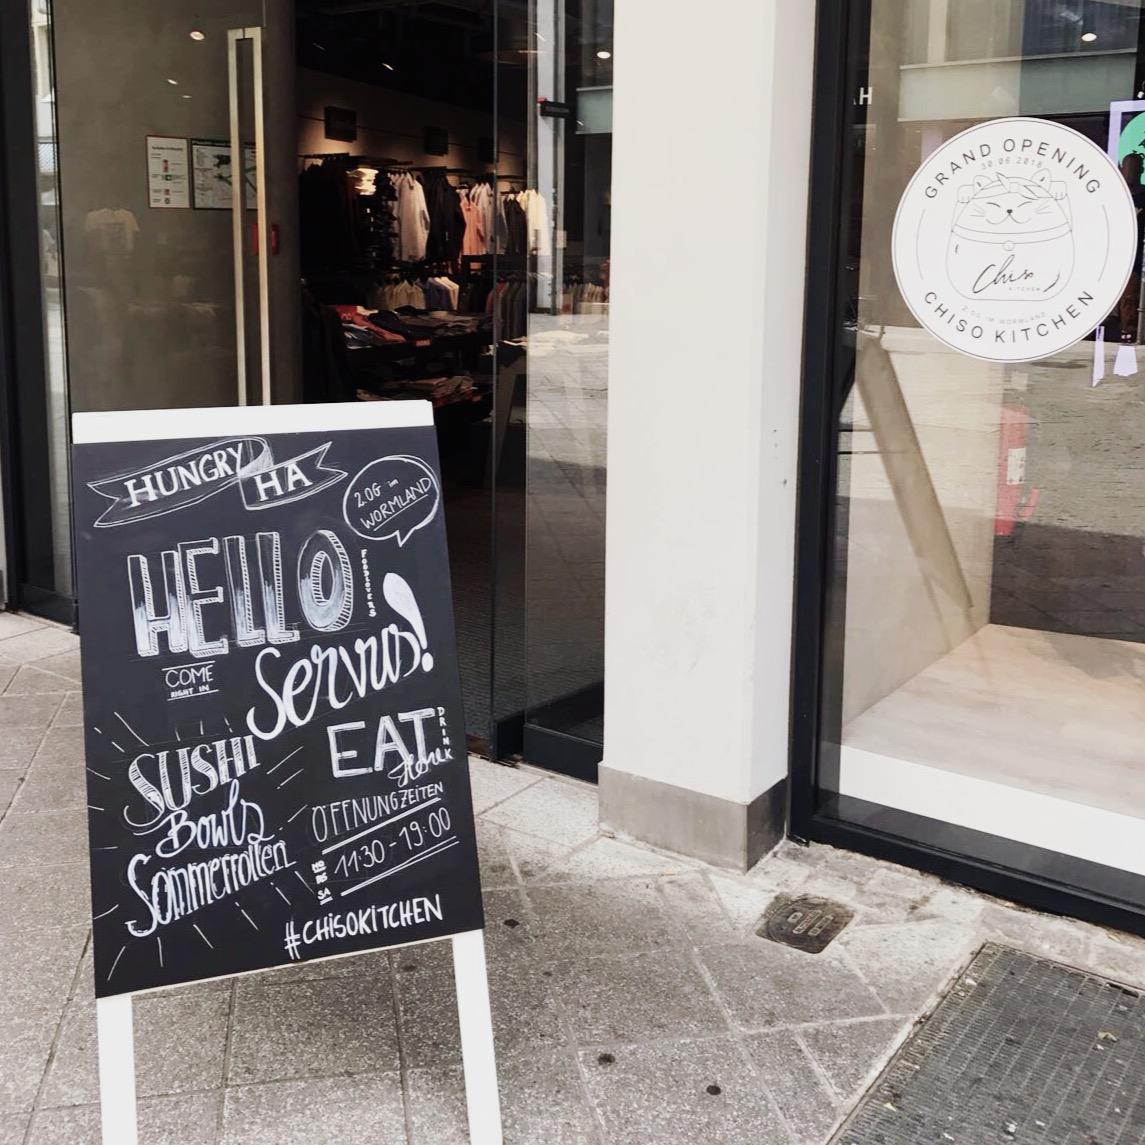 HUNGRY
HA
2.OG im
WORMLAND
HELLO
FOODLOVERS
Servus!
COME
RIGHT IN
SUSHI
Bowls
Sommerrollen
EAT
DRINK
ÖFFNUNGZEITEN
MO
BIS
SA
11:30 - 19:00
#CHISOKITCHEN
AH
GRAND OPENING
30.06.2018
Chiso
KITCHEN
2.OG IM WORMLAND
CHISO KITCHEN